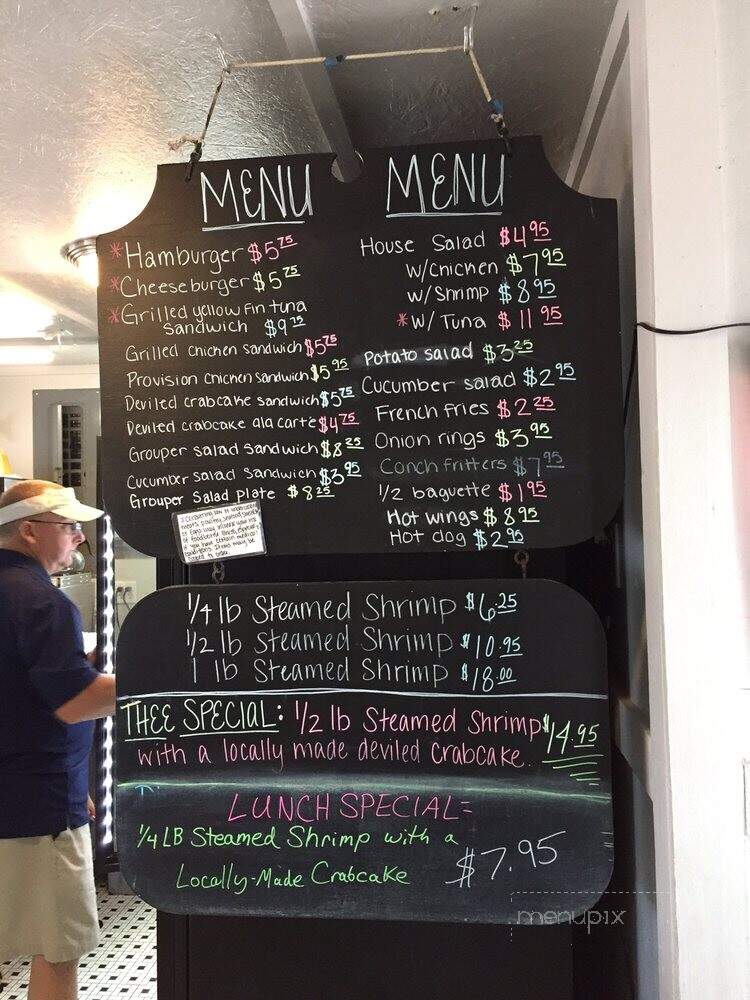 MENU
*Hamburger $5.75
*Cheeseburger $5.75
*Grilled yellow fin tuna
Sandwich $9.75
Grilled chicken sandwich $5.75
Provision chicken sandwich $5.95
Deviled crabcake sandwich $5.75
Deviled crabcake ala carte $4.75
Grouper salad sandwich $8.25
Cucumber salad sandwich $3.95
Grouper Salad Plate $8.25
MENU
House Salad $4.95
w/chicken $7.95
w/shrimp $8.95
*w/ Tuna $11.95
Potato salad $3.25
Cucumber salad $2.95
French fries $2.25
Onion rings $3.95
Conch fritters $7.95
1/2 baguette $1.95
Hot wings $8.95
Hot dog $2.95
1/4 lb Steamed Shrimp $6.25
1/2 lb Steamed Shrimp $10.95
1 lb Steamed Shrimp $18.00
THEE SPECIAL: 1/2 lb Steamed Shrimp $14.95
with a locally made deviled crabcake.
LUNCH SPECIAL=
1/4 LB Steamed Shrimp with a
Locally-Made Crabcake $7.95
menupix